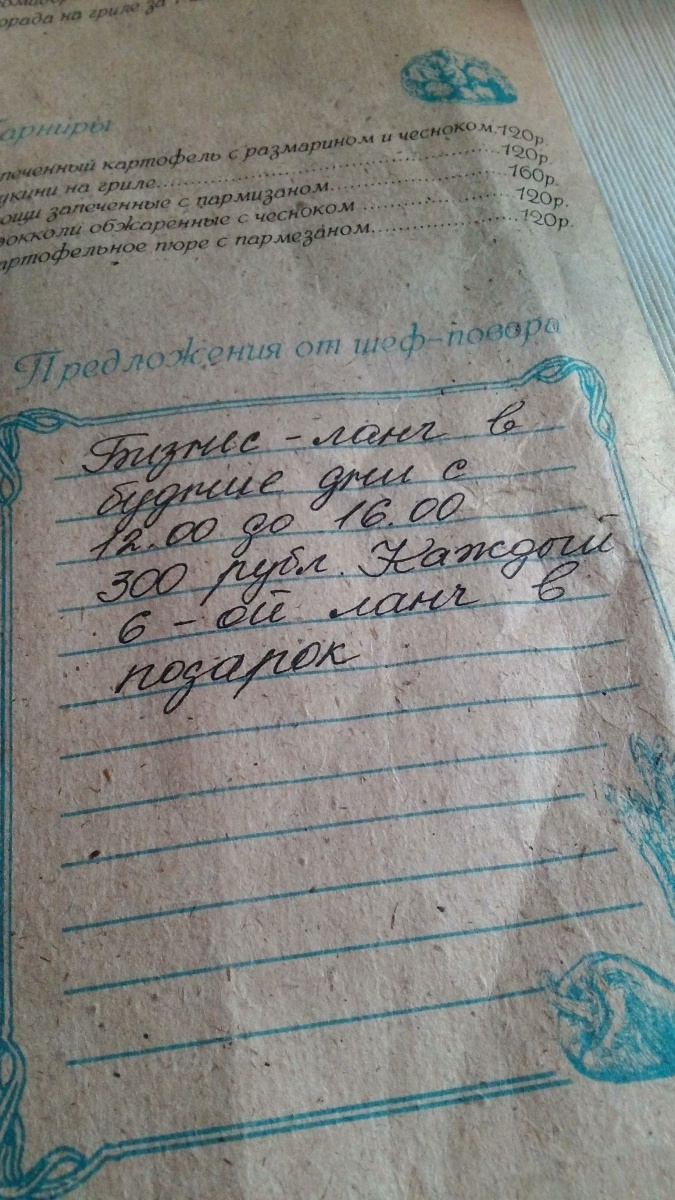 на гриле за
печенный картофель с размарином и чесноком.120р.
на гриле..............................120р.
запеченные с пармизаном..............................160р.
обжаренные с чесноком..............................120р.
пюре с пармезаном..............................120р.
Предложения от шеф-повара
Бизнес - ланч в
будние дни с
12.00 до 16.00
300 рубл. Каждый
6 - ой ланч в
подарок